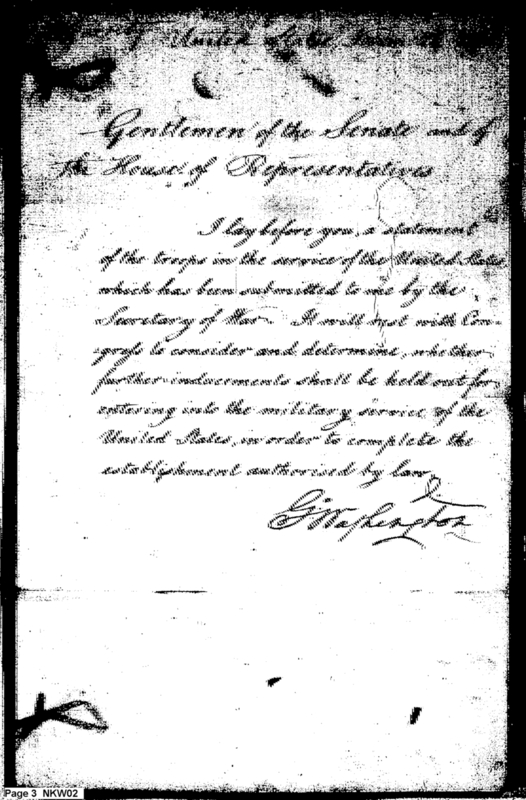 United States
Gentlemen of the Senate and of
the House of Representatives
I lay before you, a statement
of the troops in the service of the United States
which has been submitted to me by the
Secretary of War. It will rest with Con-
gress to consider and determine, whether
further inducements shall be held out for
entering into the military service of the
United States, in order to complete the
establishment authorised by law.
G:Washington
Page 3 NKW02